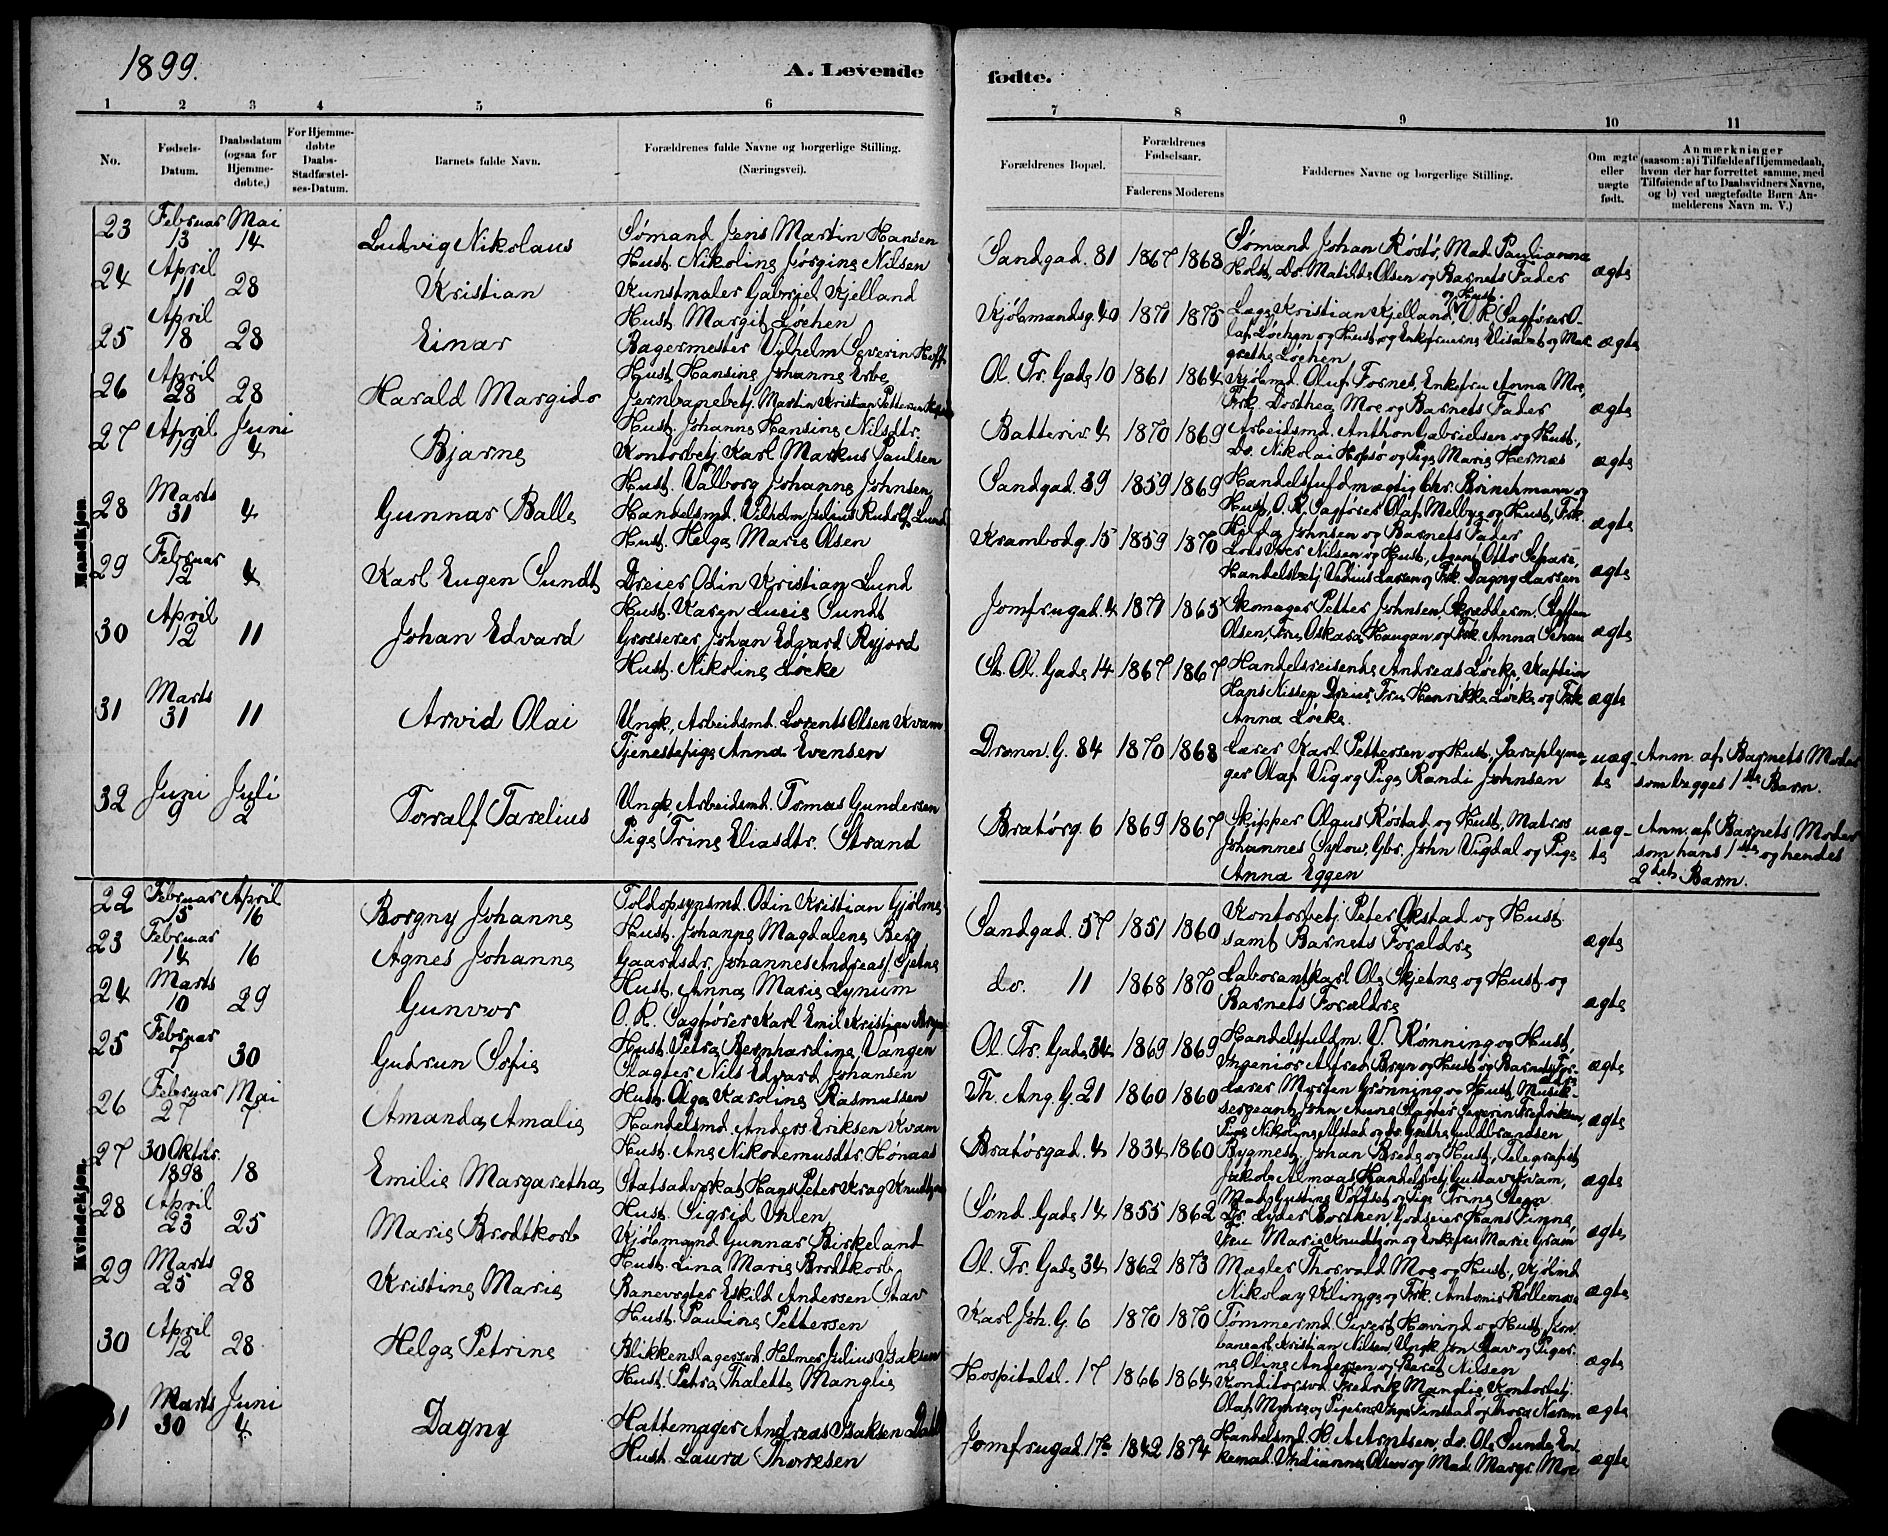 1899.
A. Levende fødte.
1 2 3 4 5 6 7 8 9 10 11
No.
Fødsels-Datum.
Daabsdatum (ogsaa for Hjemmedøbte.)
For Hjemmedøbte Daabs-Stadfæstelses-Datum.
Barnets fulde Navn.
Forældrenes fulde Navne og borgerlige Stilling. (Næringsvei).
Forældrenes Bopæl.
Forældrenes Fødselsaar.
Faderens Moderens
Faddernes Navne og borgerlige Stilling.
Om ægte eller uægte født.
Anmærkninger (saasom: a) i Tilfælde af Hjemmedaab, hvem der har forrettet samme, med Tilføiende af to Daabsvidners Navne, og b) ved uægtefødte Børn Anmelderens Navn m. V.)
Mandkjøn
23 Februar 13 Mai 14 Ludvig Nikolaus
Sømand Jens Martin Hansen
Hust. Nikoline Jørgine Nilsen
Sandgad. 81 1867 1868
Sømand Johan Røstø, Mad. Paulianna
Holst, Do. Matilde Olsen og Barnets Fader
ægte
24 April 11 28 Kristian
Kunstmaler Gabriel Kjelland
Hust. Margit Løchen
Kjøbmandsg. 40 1871 1875
Læge Kristian Kjelland og Hust., O. R. Sagfører O-
laf Løchen og Hust. og Enkefruerne Elisabet og Mar-
grethe Løchen
ægte
25 April 18 28 Einar
Bagermester Vilhelm Severin Hoff
Hust. Hansine Johanne Erbe
Ol. Tr. Gade 10 1861 1864
Kjøbmd. Oluf Fosnes, Enkefru Anna Moe,
Frk. Dorthea Moe og Barnets Fader
ægte
26 April 28 28 Harald Margido
Jernbanebetj. Martin Kristian Pettersen
Hust. Johanne Hansine Nilsdtr.
Batteriv. 4 1870 1869
Arbeidsmd. Anthon Gabrielsen og Hust.,
Do. Nikolai Hopsø og Pige Marie Hernes
ægte
27 April 19 Juni 4 Bjarne
Kontorbetj. Karl Markus Paulsen
Hust. Valborg Johanne Johnsen
Sandgad. 39 1859 1869
Handelsfuldmægtig Chr. Brinchmann og
Hust., O. R. Sagfører Olaf Melbye og Hust., Frk.
Hildg. Johnsen og Barnets Fader
ægte
28 Marts 31 4 Gunnar Balle
Handelsmd. Vilhelm Julius Rudolf Lund
Hust. Helga Marie Olsen
Krambodg. 15 1859 1870
Lods Iver Nilsen og Hust., Agent Otto
Handelsbetj. Vedius Larsen og Frk. Dagny Larsen
ægte
29 Februar 12 4 Karl Eugen Sundt
Dreier Odin Kristian Lund
Hust. Karen Lucie Sundt
Jomfrugad. 4 1871 1865
Skomager Petter Johnsen, Skrædderm. Steffen
Olsen, Fru Oskara Haugan og Frk. Anna
ægte
30 April 12 11 Johan Edvard
Grosserer Johan Edvard Ryjord
Hust. Nikoline Løcke
St. Ol. Gade 14 1867 1867
Handelsreisende Andreas Løcke, Kaptein
Hans Nissen Dreier, Fru Henrikke Løcke og Frk.
Anna Løcke.
ægte
31 Marts 31 11 Arvid Olai
Ungk., Arbeidsmd. Lorents Olsen Kvam
Tjenestepige Anna Evensen
Dronn. G. 84 1870 1868
Lærer Karl Pettersen og Hust., Paraplyma-
ger Olaf Vig og Pige Randi Johnsen
uæg-
te
Anm. af Barnets Moder
som begges 1ste Barn.
32 Juni 9 Juli 2 Torralf Tarelius
Ungk. Arbeidsmd. Tomas Gundersen
Pige Trine Eliasdtr. Strand
Bratørg. 6 1869 1867
Skipper Olaus Røstad og Hust., Matros
Johannes Sylow, Gbr. John Vigdal og Pige
Anna Eggen
uæg-
te
Anm. af Barnets Moder
som hans 1ste og hendes
2det Barn.
Kvindekjøn.
22 Februar 15 April 16 Borgny Johanne
Toldopsynsmd. Odin Kristian Gjølme
Hust. Johanne Magdalene Berg
Sandgad. 57 1851 1860
Kontorbetj. Peter Økstad og Hust
samt Barnets Forældre
ægte
23 Februar 14 16 Agnes Johanne
Gaardsdr. Johannes Andreas Sjetne
Hust. Anna Marie Lynum
do. 11 1868 1870
Laborantkarl Ole Skjetne og Hust og
Barnets Forældre
ægte
24 Marts 10 29 Gunvor
O. R. Sagfører Karl Emil Kristian Bryn
Hust. Petra Bernhardine Vangen
Ol. Tr. Gade 34 1869 1869
Handelsfuldm. V. Rønning og Hust,
Ingeniør Alfred Bryn og Hust og Barnets For-
ældre
ægte
25 Februar 7 30 Gudrun Sofie
Slagter Nils Edvard Johansen
Hust. Olga Karoline Rasmussen
Th. Ang. G. 21 1860 1860
Lærer Morten Grønning og Hust, Musik-
sergeant John Aune, Slagter Severin Fredriksen,
Pige Nikoline Alstad og do. Grethe Guldbrandsen
ægte
26 Februar 27 Mai 7 Amanda Amalie
Handelsmd. Anders Eriksen Kvam
Hust. Ane Nikodemusdtr. Hønaas
Bratørgad. 4 1834 1860
Bygmest. Johan Brede og Hust., Telegrafist
Jakob Almaas, Handelsbetj. Gustav Kvam,
Mad. Gustine Voldset og Pige Trine Stegn
ægte
27 30 Oktbr. 1898 18 Emilie Margaretha
Statsadvokat Hans Peter Krag Knudtzon
Hust. Sigrid Uhlen
Sønd. Gade 14 1855 1862
Dr. Lyder Borthen, Godseier Hans Finne,
Fru Marie Knudtzon og Enkefru Marie Gram
ægte
28 April 23 25 Marie Brodtkorb
Kjøbmand Gunnar Birkeland
Hust. Lina Marie Brodtkorb
Ol. Tr. Gade 34 1862 1873
Mægler Thorvald Moe og Hust., Kjøbmd
Nikolay Klinge og Frk. Antonie
ægte
29 Marts 25 28 Kristine Marie
Banevogter Eskild Andersen Stav
Hust. Pauline Pettersen
Karl Joh. G. 6 1870 1870
Tømmermd. Sivert Hovind og Hust,
Kristian Nilsen, Ungk. Jon Stav og Piger-
ne Oline Andersen og Beret Nilsen
ægte
30 April 12 28 Helga Petrine
Blikkenslagersvd. Helmer Julius Isaksen
Hust. Petra Thalette Manglie
Hospitalsl. 17 1866 1864
Konditorsvd. Fredrik Manglie, Kontorbetj.
Olaf Myhre og Pigerne Inga Finstad og Thora Næram
ægte
31 Marts 30 Juni 4 Dagny
Hattemager Andreas Isaksen Dahl
Hust. Laura Thoresen
Jomfrugad. 17a 1842 1874
Handelsmd. H. A. Arntsen, do. Ole Sunde, En-
kemad. Indianne Olsen og Mad. Margr. Moe
ægte